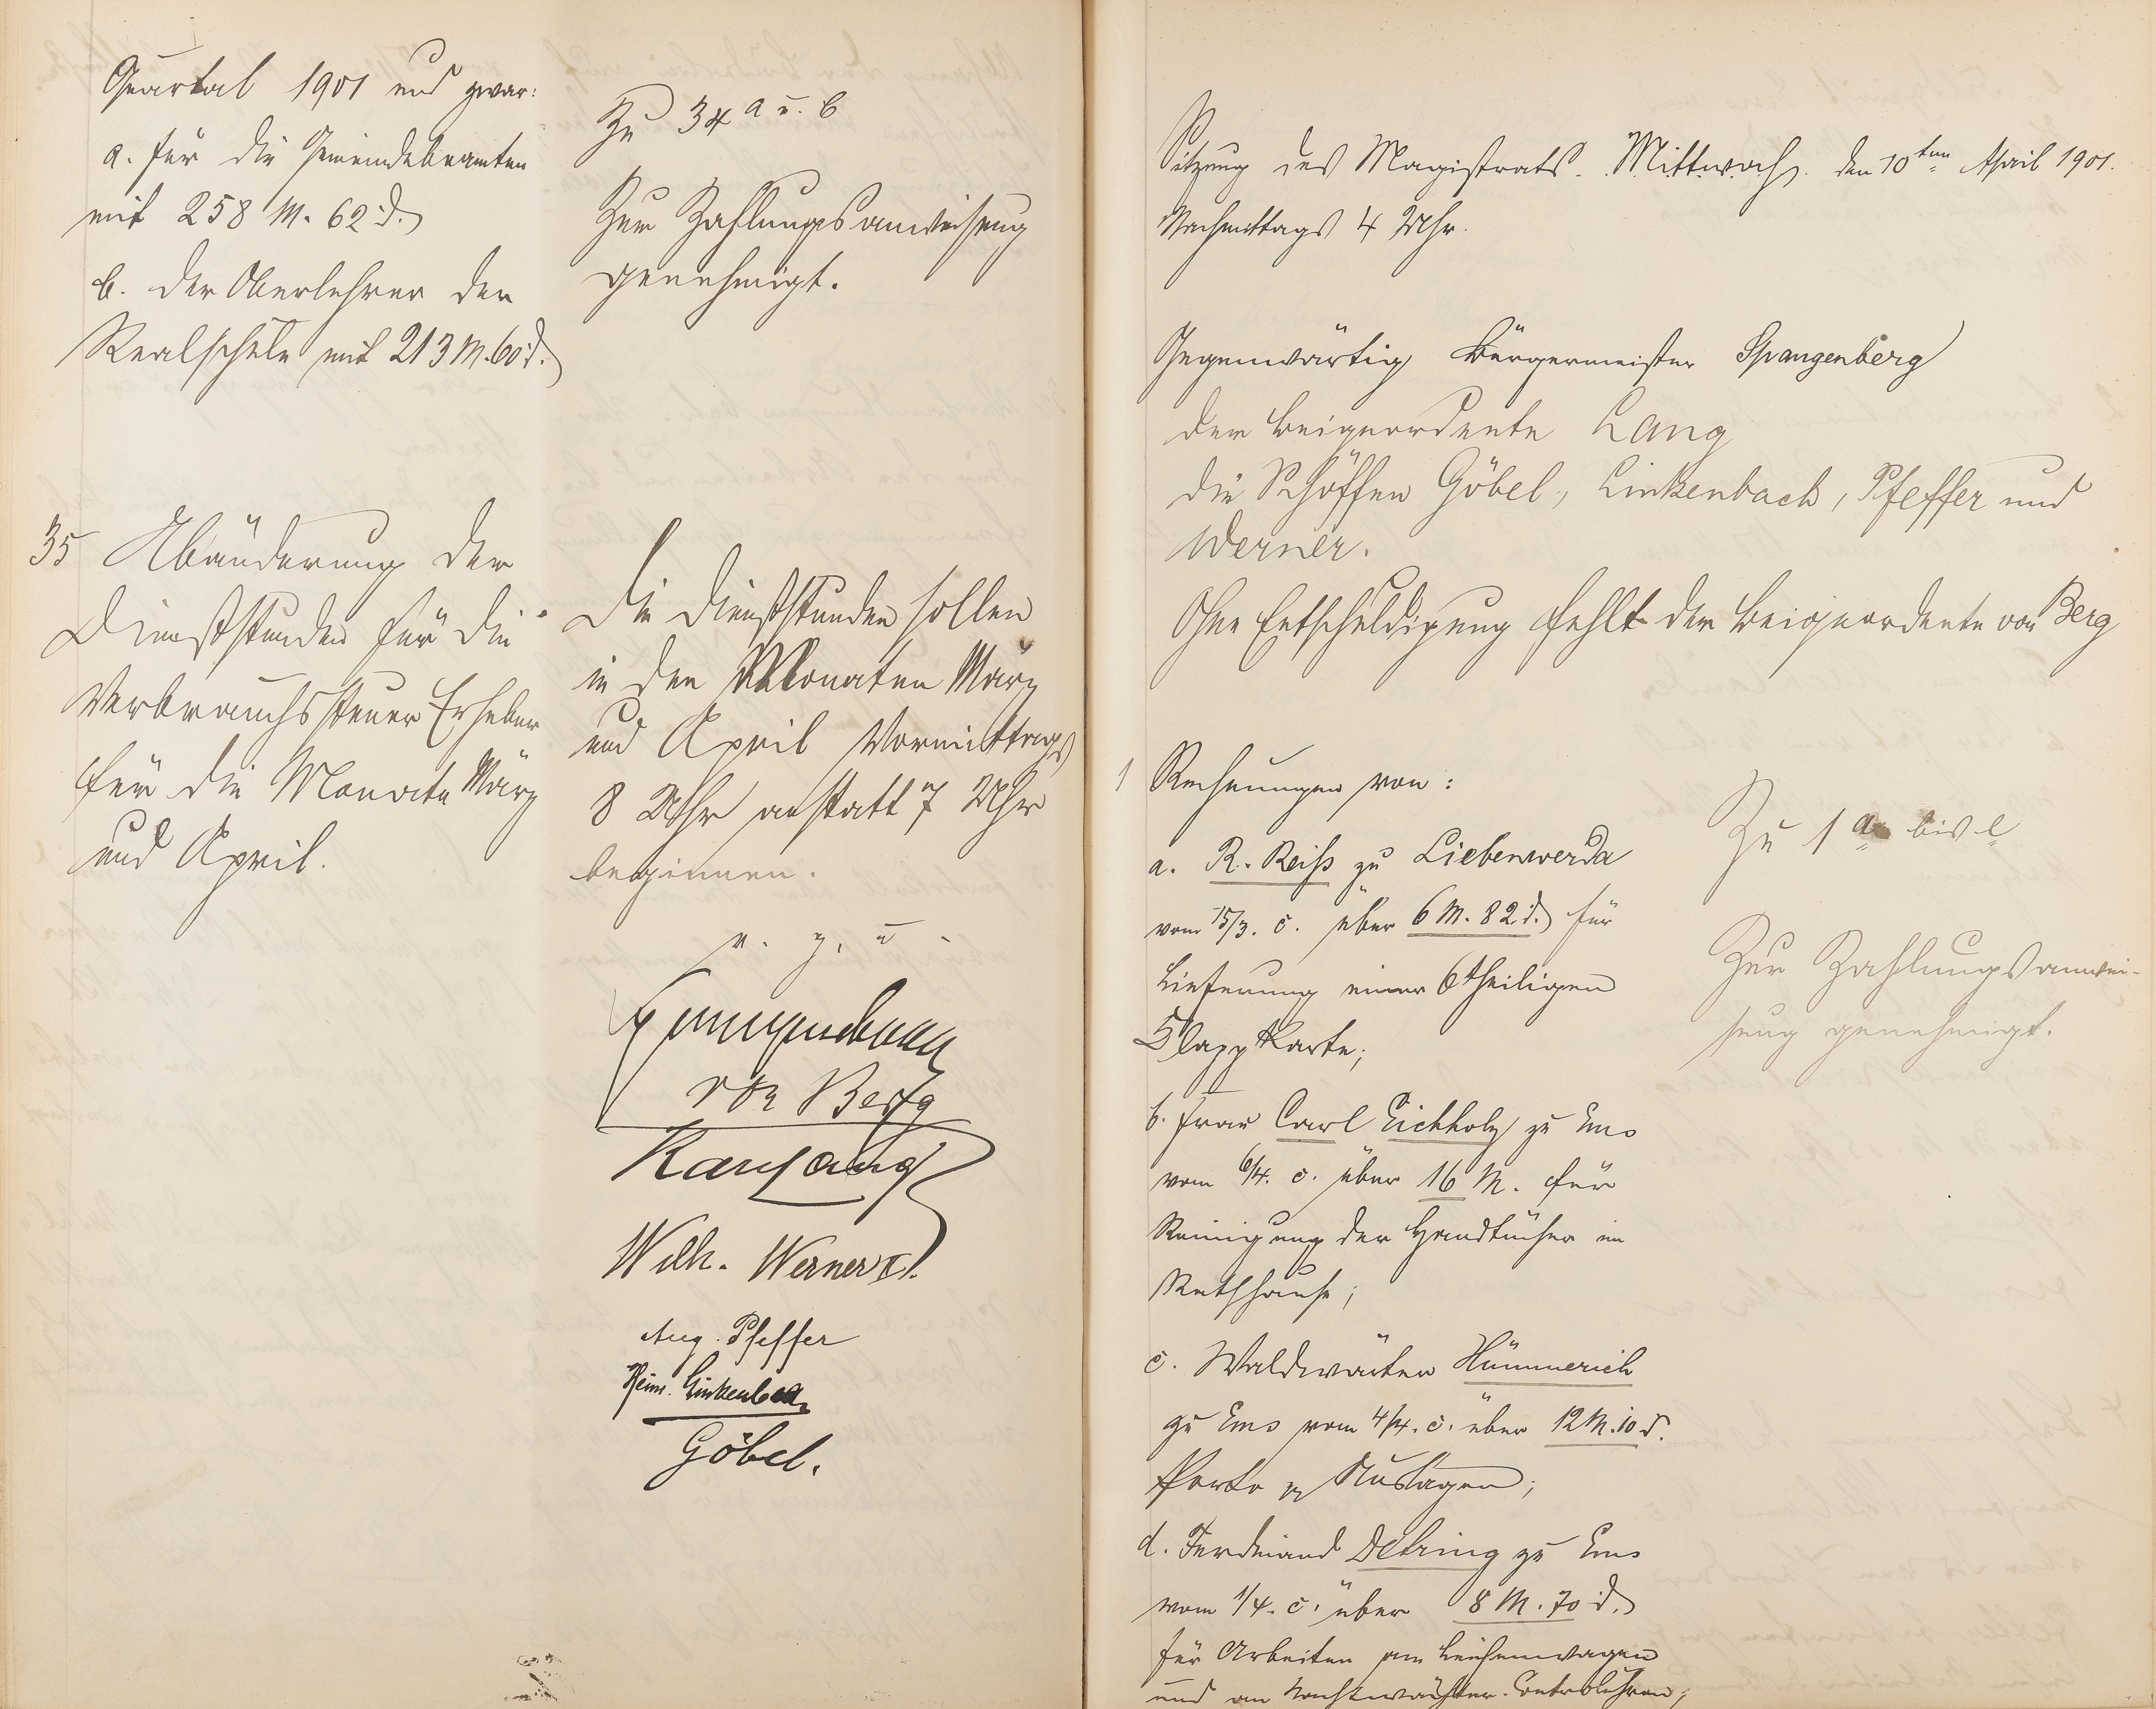 Quartal 1901 und zwar:
a. für die Gemeindebeamten
mit 258 M. 62 d.
b. der Oberlehrer der
Realschule mit 213 M. 60 d.
Zu 34 a u. b
Zur Zahlungsanweisung
genehmigt.
35 Abänderung der
Dienststunden für die
Verbrauchssteuer Erheber
für die Monate März
und April.
Die Dienststunden sollen
in den Monaten März
und April Vormittags
8 Uhr anstatt 7 Uhr
beginnen.
v. g. u.
Spangenberg
von Berg
Karl Lang
Wilh. Werner II.
Aug. Pfeffer
Heinr. Linkenbach
Göbel.
Sitzung des Magistrats. Mittwoch, den 10ten April 1901.
Nachmittags 4 Uhr.
Gegenwärtig Bürgermeister Spangenberg
der Beigeordente Lang
die Schöffen Göbel, Linkenbach, Pfeffer und
Werner.
Ohne Entschuldigung fehlt der Beigeordente von Berg
1 Rechnungen von:
a. R. Reiß zu Liebenwerda
vom 15/3. c. über 6 M. 82 d. für
Lieferung einer 6theiligen
Klappkarte;
b. Frau Carl Eichholz zu Ems
vom 6/4. c. über 16 M. für
Reinigung der Handtücher im
Rathhause;
c. Waldwärter Hümmerich
zu Ems vom 4/4. c. über 12 M. 10 d.
Porto Auslagen;
d. Ferdinand Dehring zu Ems
vom 1/4. c. über 8 M. 70 d.
für Arbeiten am Leichenwagen
und an Nachtwächter-Controluhren;
Zu 1 a bis e
Zur Zahlungsanwei-
sung genehmigt.